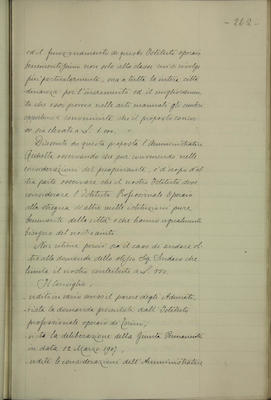 - 262 -
ed il funzionamento di questo Istituto operaio
benemerito non solo alla classe cui si rivolge
più particolarmente, ma a tutta la intera città
dinanzi per l'incremento ed il miglioramen-
to che essa prova nelle arti manuali gli sembra
opportuno e conveniente che il proposto concor-
so sia elevato a L.
Dissente da questa proposta l'Amministratore
osservando che pur convenendo nelle
considerazioni del preopinante, v'è d'uopo d'al-
tra parte osservare che il nostro Istituto deve
considerare l'Istituto Professionale Operaio
alla stregua di altre molte istituzioni pure
benemerite della città che hanno ugualmente
bisogno del nostro aiuto.
Non ritiene perciò sia il caso di andare ol-
tre alla domanda dello stesso Sig. Sindaco che
limita il nostro contributo a L.
Il Consiglio,
udito in vario senso il parere degli Adunati,
vista la domanda presentata dall'Istituto
professionale operaio di Torino,
vista la deliberazione della Giunta Permanente
in data 12 Marzo 1907,
udite le considerazioni dell'Amministratore